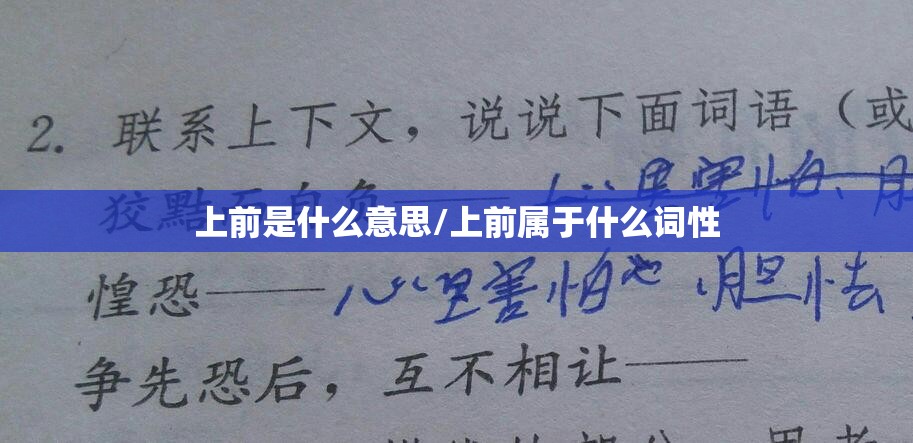 2. 联系上下文，说说下面词语（或
狡黠而自负——心里害怕、胆
上前是什么意思/上前属于什么词性
惶恐——心里害怕 胆怯
争先恐后，互不相让——